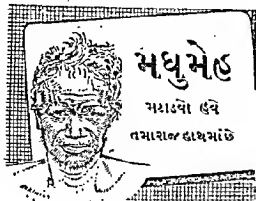 મધુમેહ
મટાડવો હવે
તમારાજ હાથમાંછે